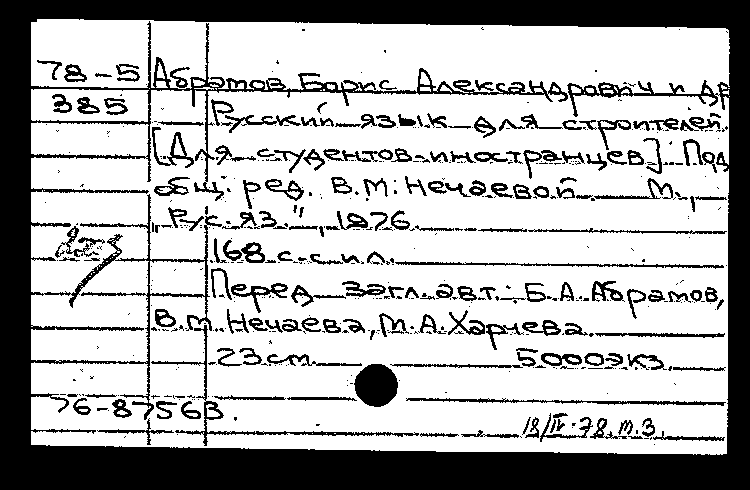 78-5 Абрамов, Борис Александрович и др
385 Русский язык для строителей.
[Для студентов-иностранцев] Под
общ. ред. В.М. Нечаевой М.,
"Рус. яз.", 1976.
168 с. с ил.
Перед загл. авт.: Б.А. Абрамов,
В.М. Нечаева, М.А. Харчева
23 см. 5000 экз.
76-87563.
18/IV-78. т.З.